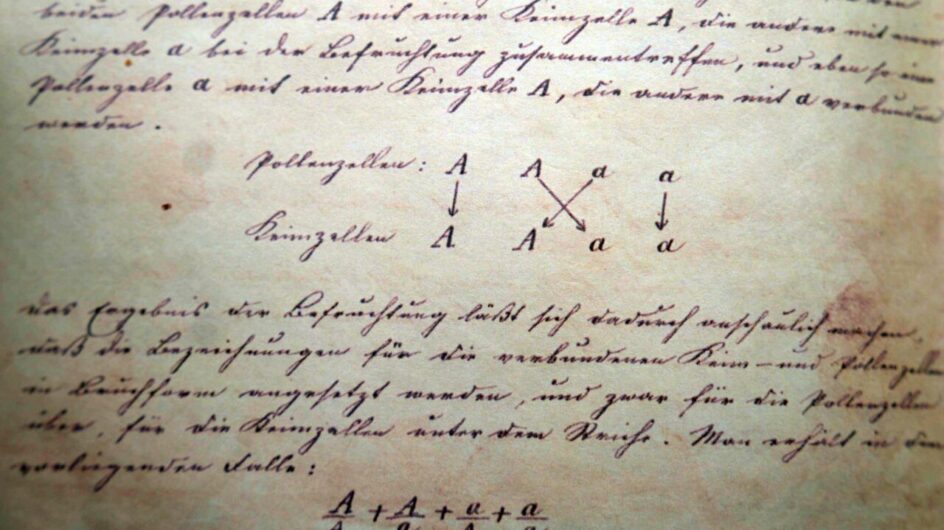 beiden Pollenzellen A mit einer Keimzelle A, die andere mit einer
Keimzelle a bei der Befruchtung zusammentreffen, und eben so eine
Pollenzelle a mit einer Keimzelle A, die andere mit a verbunden
werden.
Pollenzellen: A A a a
Keimzellen A A a a
das Ergebnis der Befruchtung läßt sich dadurch anschaulich machen,
daß die Bezeichnungen für die verbundenen Keim- und Pollenzellen
in Bruchform angesetzt werden, und zwar für die Pollenzellen
über, für die Keimzellen unter dem Striche. Man erhält in dem
vorliegenden Falle:
A + A + a + a